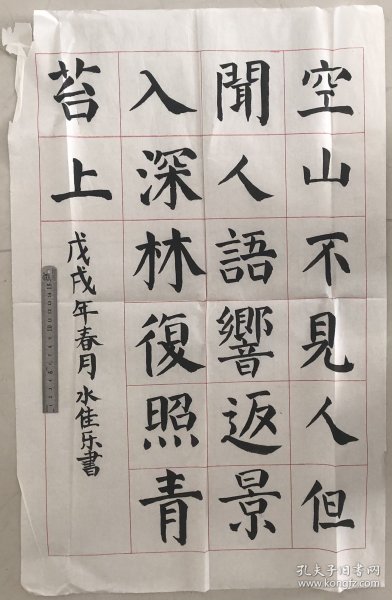 空山不見人但
聞人語響返景
入深林復照青
苔上
戊戌年春月水佳乐書
孔夫子旧书网
www.kongfz.com